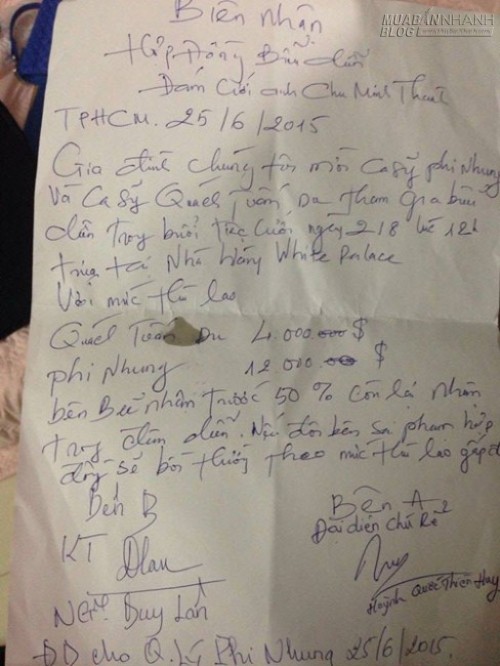 MUABANNHANH
BLOG
Biên nhận
Hợp Đồng Biểu diễn
Đám Cưới anh Chu Minh
TPHCM. 25/6/2015
Gia đình chúng tôi mời Ca sỹ phi Nhung
Và Ca Sỹ Quách Tuấn Du Tham gia biểu
diễn trong buổi tiệc Cưới ngày 2/8 lúc 12h
trưa tại Nhà hàng White Palace
Với mức thù lao
Quách Tuấn Du 4.000.000 $
phi Nhung 12.000.000 $
bên B nhận trước 50 % còn lại nhận
trong đêm diễn. Nếu đôi bên sai phạm hợp
đồng sẽ bồi thường theo mức thù lao gấp đôi
Bên B
Bên A
Đại diện Chú Rể
KT
Duy Lân
Huỳnh Quốc Thiên Huy
ĐD cho Q. Lý Phi Nhung 25/6/2015.